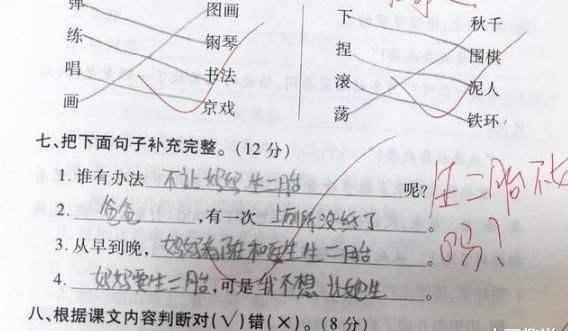 弹 图画 下 秋千
练 钢琴 捏 围棋
唱 书法 滚 泥人
画 京戏 荡 铁环
七、把下面句子补充完整。(12分)
1. 谁有办法 不让妈妈生二胎 呢?
生二胎不
2. 爸爸 ,有一次 上厕所没纸了 。
吗?
3. 从早到晚, 妈妈都在和医生生二胎 。
4. 妈妈要生二胎 ,可是 我不想让她生 。
八、根据课文内容判断对(√)错(×)。(8分)